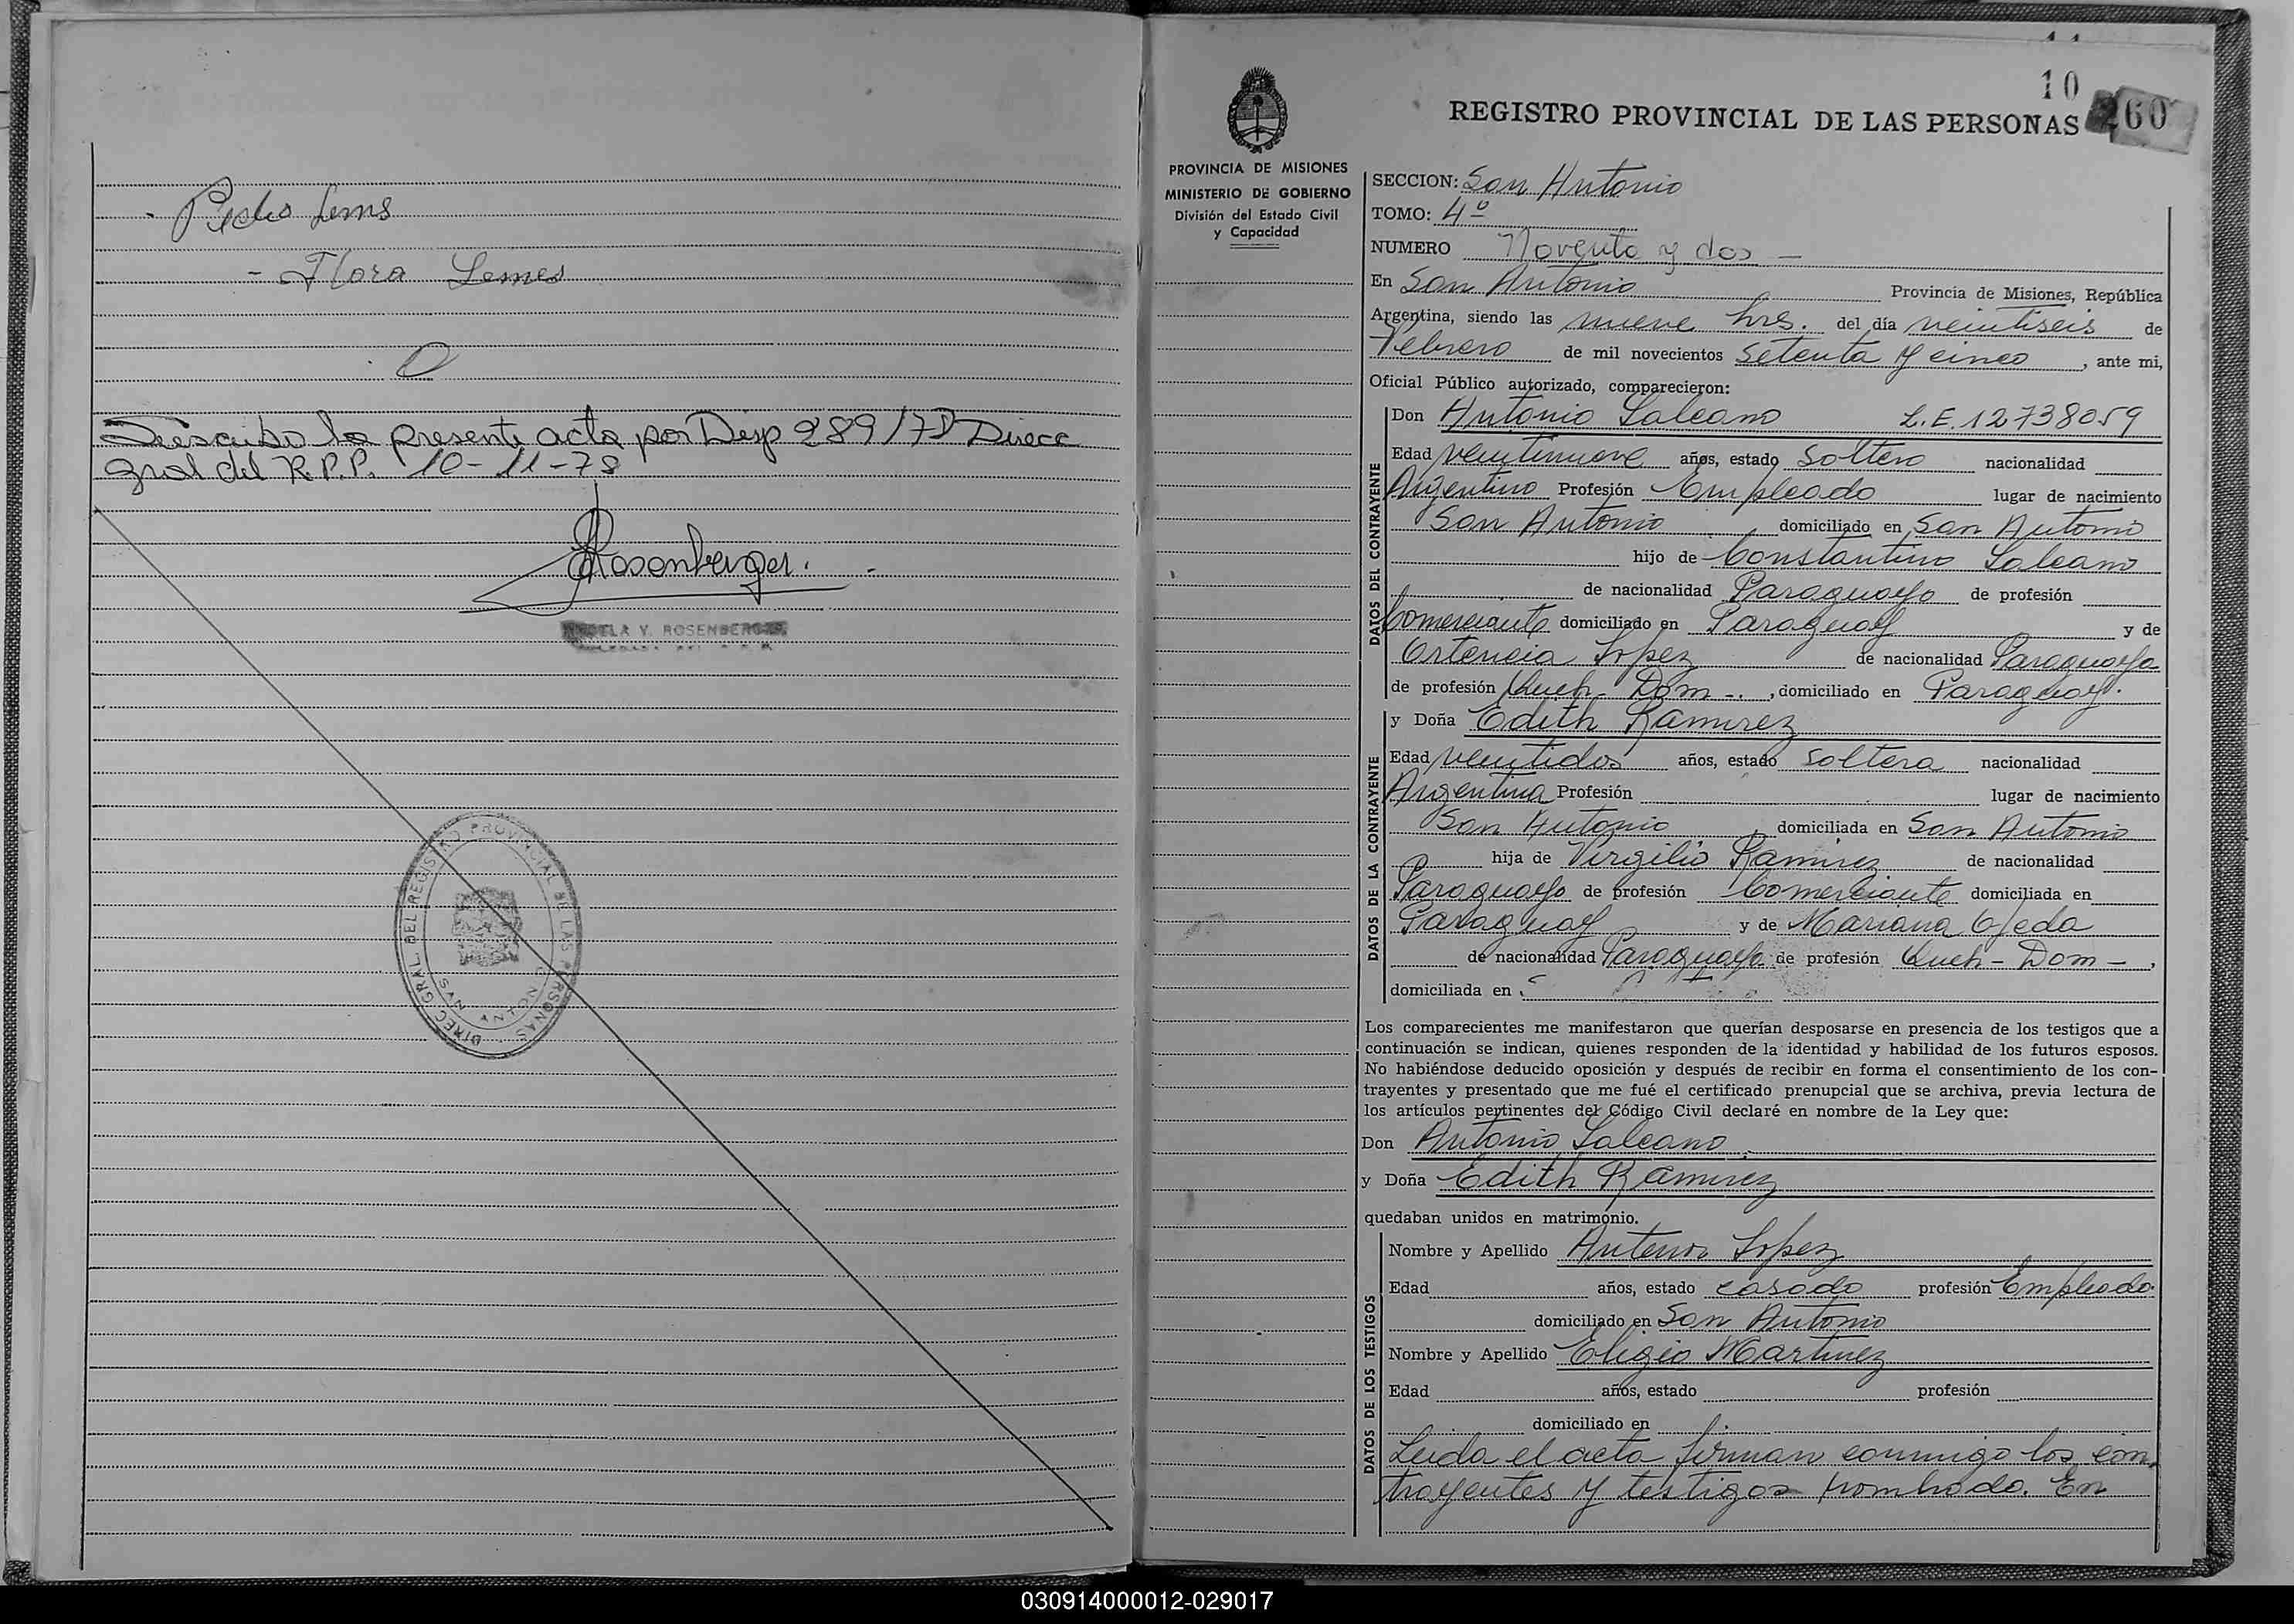 Pedro Lems
- Flora Lemes
la presente acta por Disp 289/78 Direcc
Gral del R.P.P. 10-11-78
Rosenberger.
ELA V. ROSENBERGER
DIREC. GRAL. DEL REGISTRO PROVINCIAL DE LAS PERSONAS
SAN ANTONIO
10
60
REGISTRO PROVINCIAL DE LAS PERSONAS
PROVINCIA DE MISIONES
MINISTERIO DE GOBIERNO
División del Estado Civil
y Capacidad
SECCION: San Antonio
TOMO: 4º
NUMERO Noventa y dos —
En San Antonio Provincia de Misiones, República
Argentina, siendo las nueve hrs. del día veintiseis de
Febrero de mil novecientos setenta y cinco, ante mi,
Oficial Público autorizado, comparecieron:
DATOS DEL CONTRAYENTE
Don Antonio Salcano L.E. 12738059
Edad veintinueve años, estado soltero nacionalidad
Argentino Profesión Empleado lugar de nacimiento
San Antonio domiciliado en San Antonio
hijo de Constantino Salcano
de nacionalidad Paraguayo de profesión
Comerciante domiciliado en Paraguay y de
Ortencia Lopez de nacionalidad Paraguaya
de profesión Queh- Dom -. , domiciliado en Paraguay.
y Doña Edith Ramirez
DATOS DE LA CONTRAYENTE
Edad veintidos años, estado soltera nacionalidad
Argentina Profesión lugar de nacimiento
San Antonio, domiciliada en San Antonio
hija de Virgilio Ramirez de nacionalidad
Paraguayo de profesión Comerciante domiciliada en
Paraguay y de Mariana Ojeda
de nacionalidad Paraguaya de profesión Queh - Dom - ,
domiciliada en
Los comparecientes me manifestaron que querían desposarse en presencia de los testigos que a
continuación se indican, quienes responden de la identidad y habilidad de los futuros esposos.
No habiéndose deducido oposición y después de recibir en forma el consentimiento de los con-
trayentes y presentado que me fué el certificado prenupcial que se archiva, previa lectura de
los artículos pertinentes del Código Civil declaré en nombre de la Ley que:
Don Antonio Salcano
y Doña Edith Ramirez
quedaban unidos en matrimonio.
DATOS DE LOS TESTIGOS
Nombre y Apellido Antenor Lopez
Edad años, estado casado profesión Empleado
domiciliado en San Antonio
Nombre y Apellido Eligio Martinez
Edad años, estado profesión
domiciliado en
Leida el acta firman conmigo los con
trayentes y testigos nombrado. En
030914000012-029017